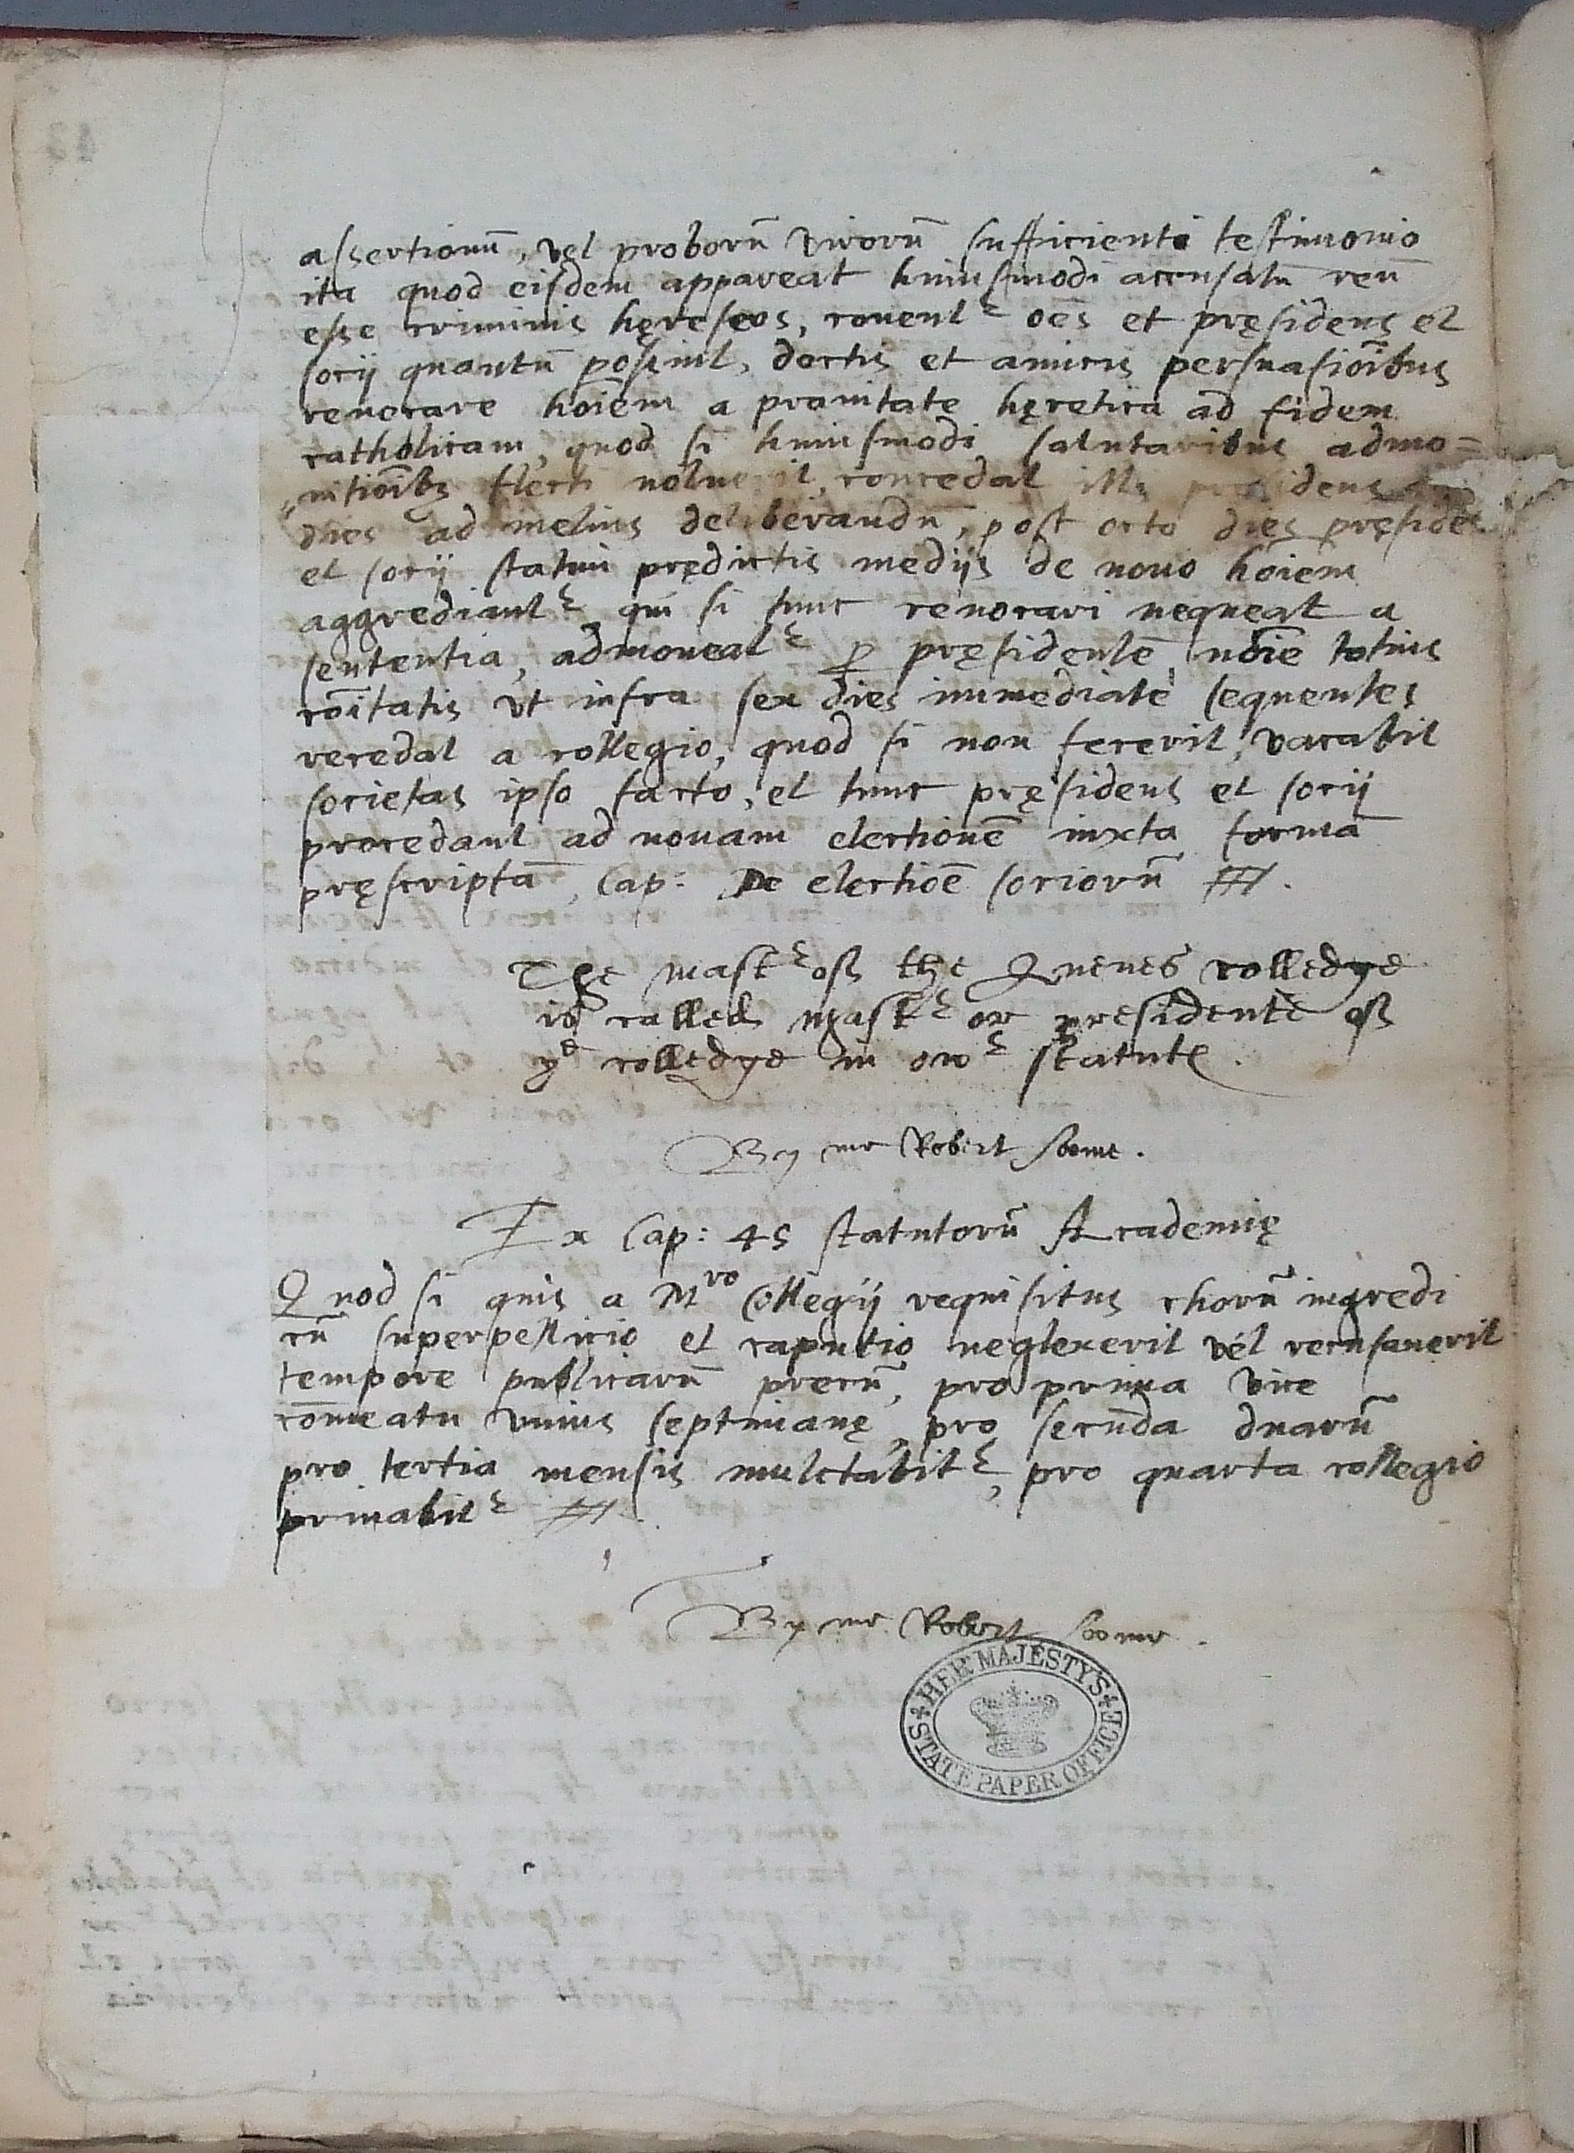 assertionū, vel proborū virorū sufficienti testimonio
ita quod eisdem appareat huiusmodi accusatū reū
esse criminis hęreseos, conent^r oēs et pręsidens et
socij quantū possint, doctis et amicis persuasiōibus
reuocare hōiem a prauitate hęretica ad fidem
catholicam, quod si huiusmodi salutaribus admo=
nitiōibs flecti noluerit, concedat illi pręsidens
dies ad melius deliberandū, post octo dies pręsides
et socij statim prędictis medijs de nouo hōiem
aggrediant^r qui si tunc reuocari nequeat a
sententia, admoneat^r p pręsidentē nōie totius
cōitatis vt infra sex dies immediate sequentes
recedat a collegio, quod si non fecerit, vacabit
societas ipso facto, et tunc pręsidens et socij
procedant ad nouam electionē iuxta formā
pręscriptā, Cap: De electiōe sociorū
The mast^r off the Quenes colledge
is called mast^r or presidente off
y^e colledge in ow^r statute.
By me Robert Soome.
Ex Cap: 45 statutorū Academię
Quod si quis a M^ro Collegij requisitus chorū ingredi
cū superpellicio et caputio neglexerit vel recusauerit
tempore publicarū precū, pro prima vice
cōmeatu vnius septimanę, pro secūda duarū
pro tertia mensis mulctabit^r, pro quarta collegio
priuabit^r
By me Robert Soome.
HER MAJESTY'S
STATE PAPER OFFICE